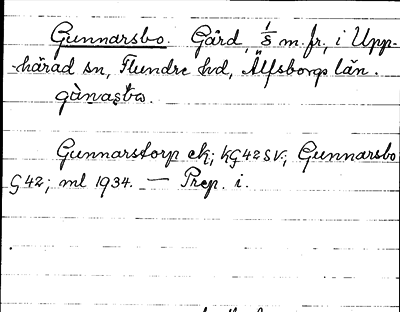 Gunnarsbo. Gård, 1/8 m. fr., i Upp-
härad sn, Flundre hd, Älfsborgs län.
gùnasbo.
Gunnarstorp ek; KG42SV; Gunnarsbo
G42; ml 1934. — Prep. i.